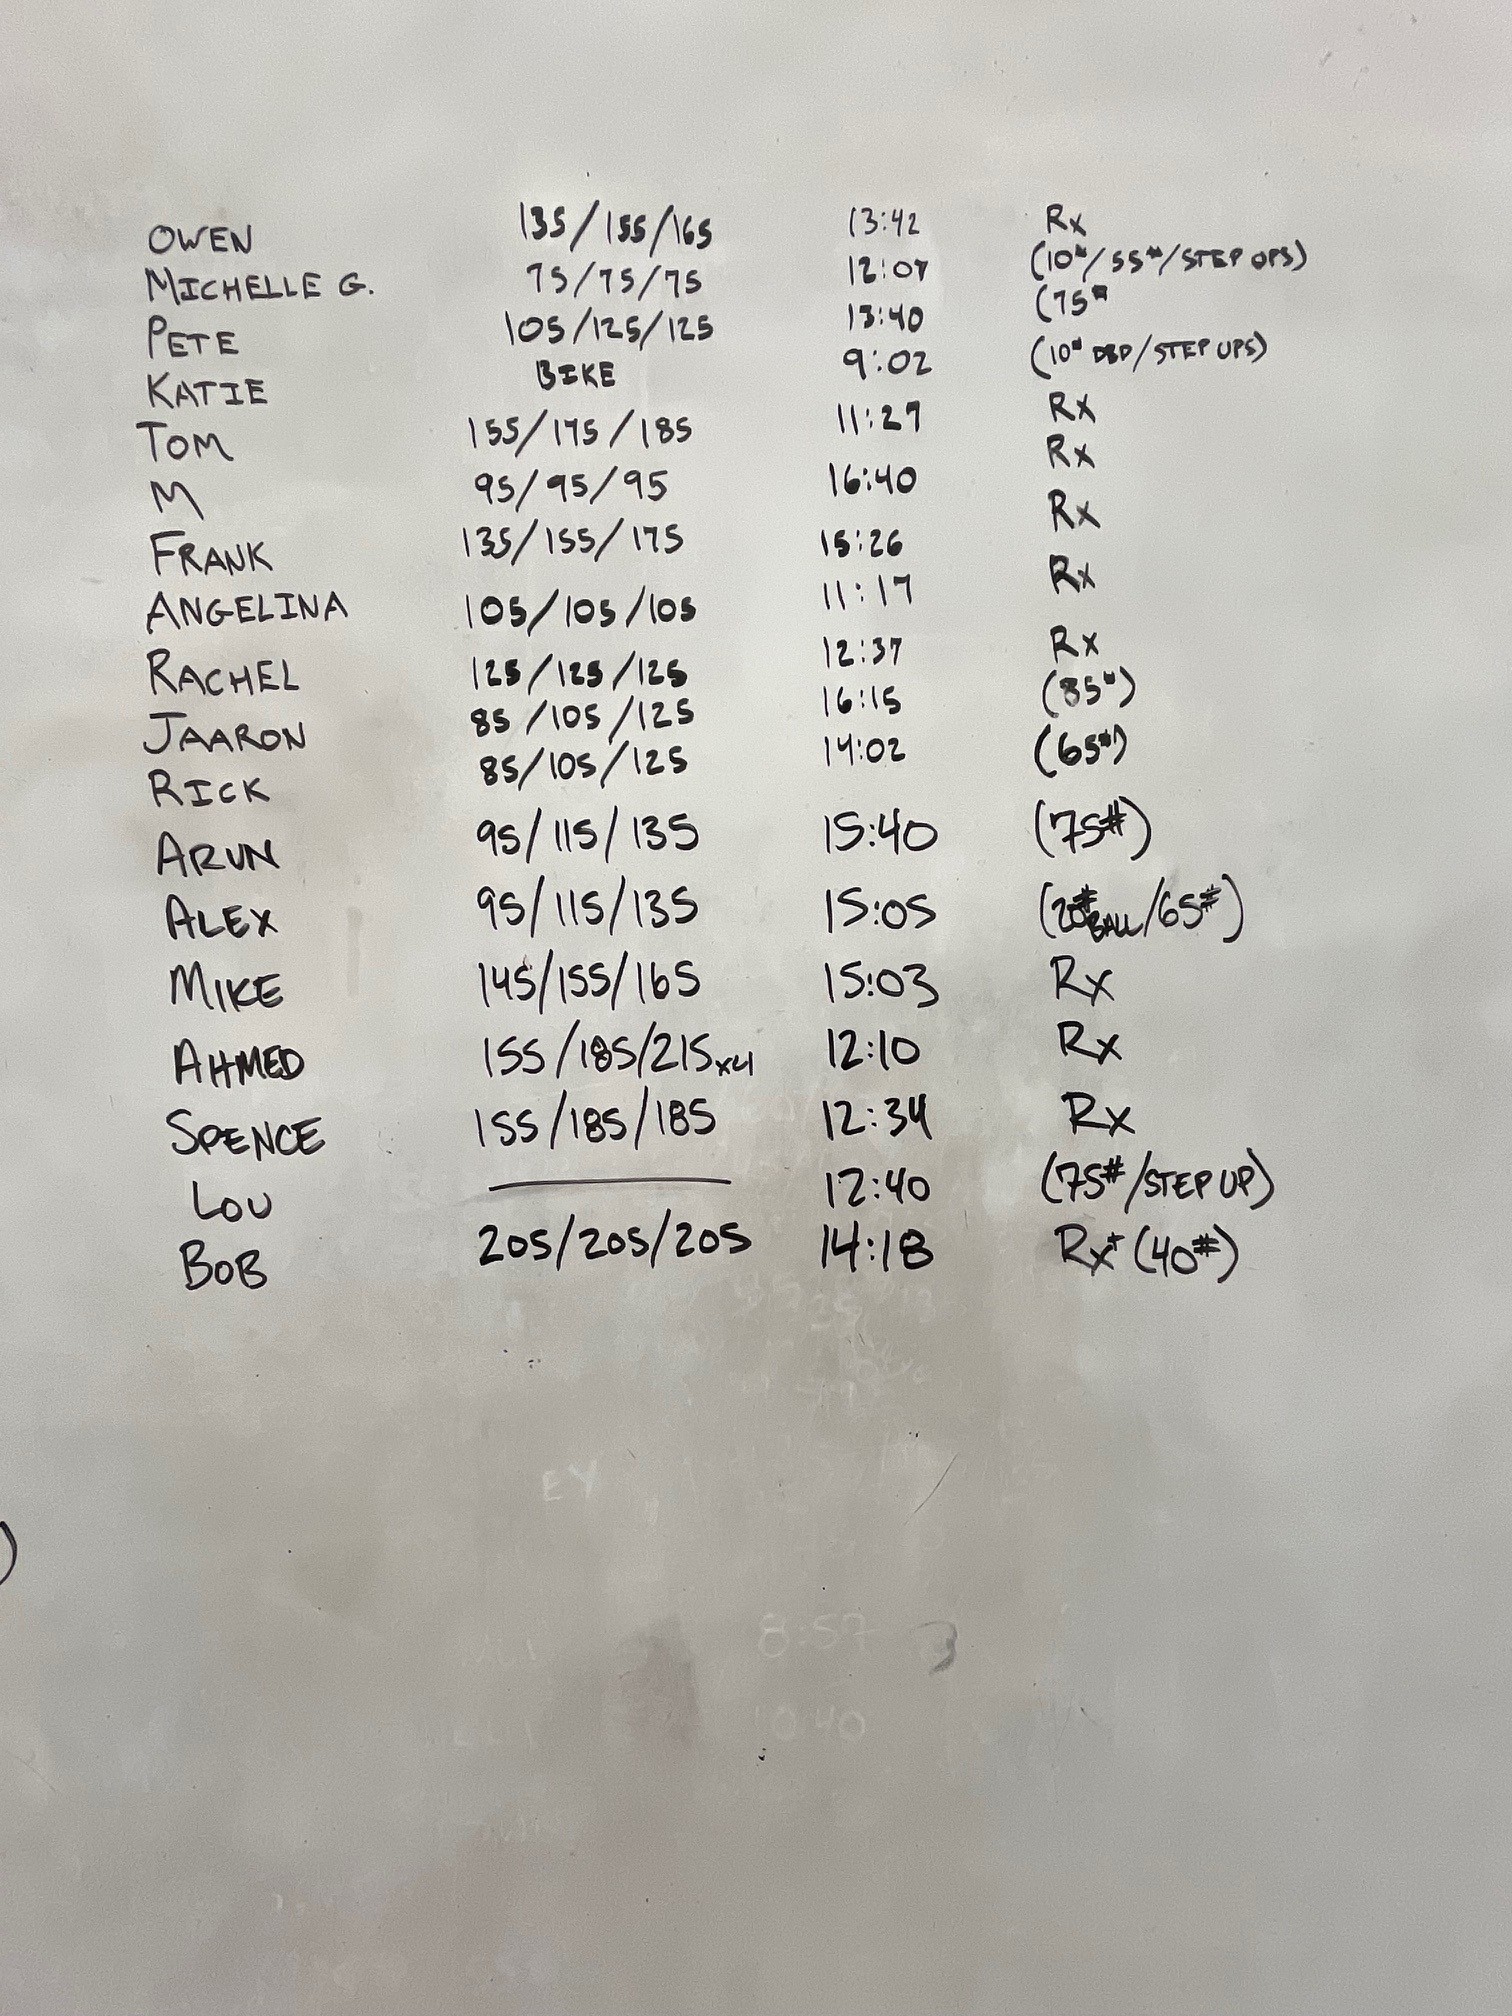 OWEN 135/155/165 13:42 Rx
MICHELLE G. 75/75/75 12:07 (10#/55#/STEP UPS)
PETE 105/125/125 13:40 (75#
KATIE BIKE 9:02 (10# DBD/STEP UPS)
TOM 155/175/185 11:27 Rx
M 95/95/95 16:40 Rx
FRANK 135/155/175 15:26 Rx
ANGELINA 105/105/105 11:17 Rx
RACHEL 125/125/125 12:37 Rx
JAARON 85/105/125 16:15 (85#)
RICK 85/105/125 14:02 (65#)
ARUN 95/115/135 15:40 (75#)
ALEX 95/115/135 15:05 (20# BALL/65#)
MIKE 145/155/165 15:03 Rx
AHMED 155/185/215x4 12:10 Rx
SPENCE 155/185/185 12:34 Rx
LOU 12:40 (75#/STEP UP)
BOB 205/205/205 14:18 Rx+ (40#)
EY
8:57
10:40